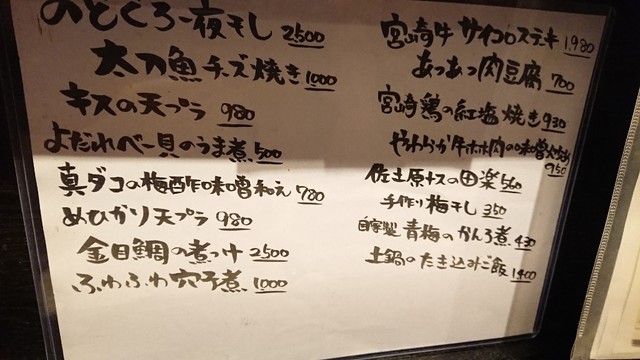 のどぐろ一夜干し 2500
太刀魚チーズ焼き 1000
キスの天プラ 980
よだれべー貝のうま煮 500
真ダコの梅酢味噌和え 780
めひかり天プラ 980
金目鯛の煮つけ 2500
ふわふわ穴子煮 1000
宮崎牛サイコロステーキ 1,980
あつあつ肉豆腐 700
宮崎鶏の紅塩焼き 930
やわらか牛ホホ肉の味噌煮込み 950
佐土原ナスの田楽 560
手作り梅干し 350
自家製青梅のかんろ煮 430
土鍋のたき込みご飯 1400